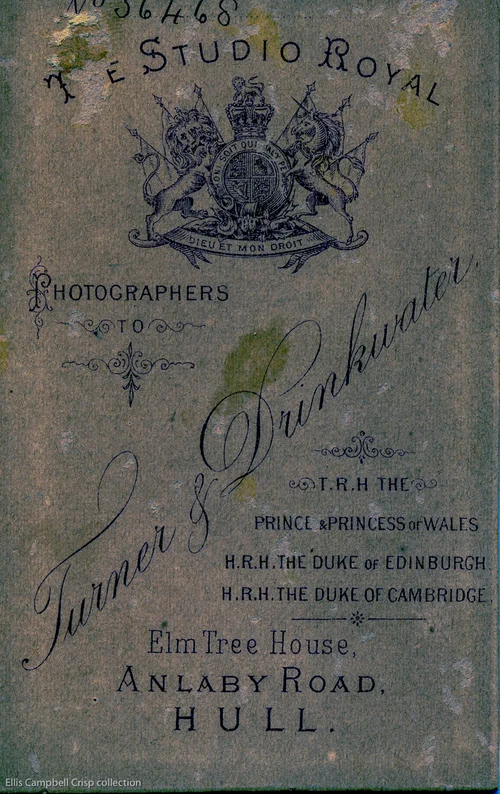 No 36468
The Studio Royal
HONI SOIT QUI MAL Y PENSE
DIEU ET MON DROIT
PHOTOGRAPHERS
TO
Turner & Drinkwater.
T.R.H THE
PRINCE & PRINCESS of WALES
H.R.H. THE DUKE OF EDINBURGH
H.R.H. THE DUKE OF CAMBRIDGE.
Elm Tree House,
ANLABY ROAD,
HULL.
Ellis Campbell Crisp collection